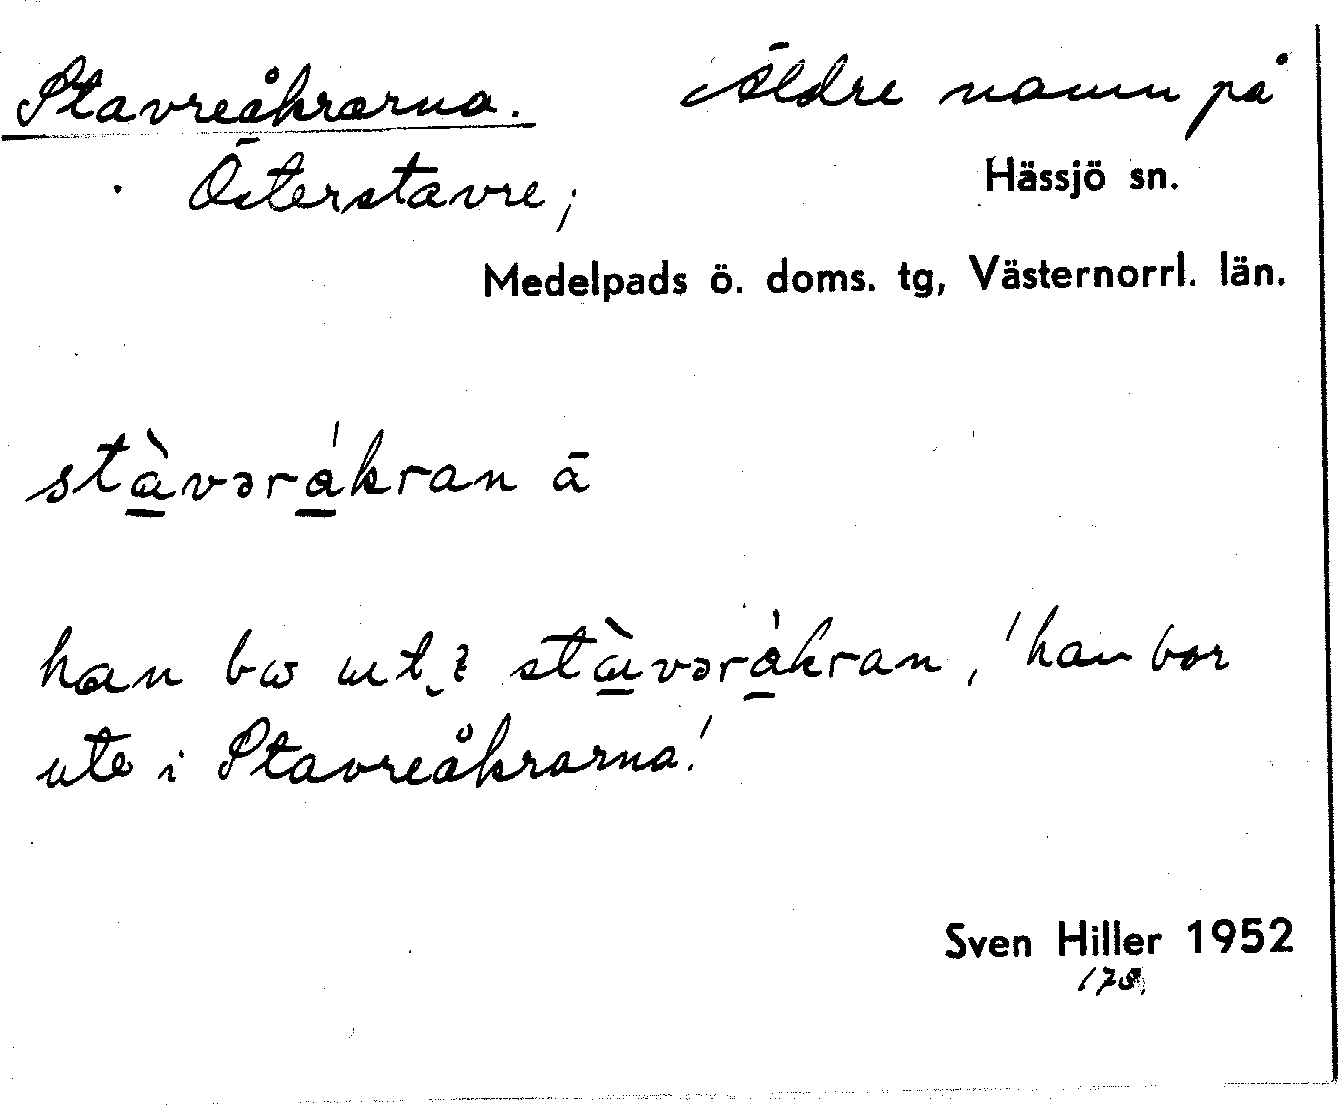 Stavreåkrarna. Äldre namn på
Österstavre;
Hässjö sn.
Medelpads ö. doms. tg, Västernorrl. län.
stàvəråkran ā
han bω ut ̮ɩ stàvəråkran, 'han bor
ute i Stavreåkrarna!'
Sven Hiller 1952